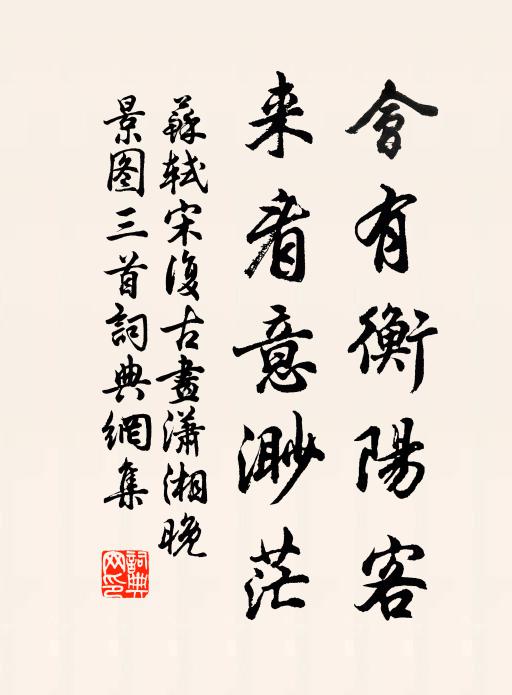 會有衡陽客
来看意渺茫
蘇軾宋復古畫瀟湘晚
景图三首詞典網集
詞典網印